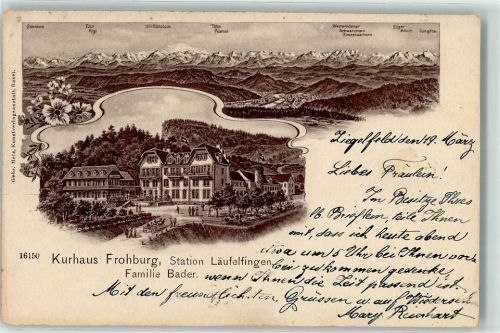 Glärnisch Tödi Rigi Titlis Pilatus Wetterhörner Schreckhorn Finsteraarhorn Eiger Mönch Jungfrau
Gebr. Metz, Kunstverlagsanstalt, Basel.
16150
Kurhaus Frohburg, Station Läufelfingen,
Familie Bader.
Ziegelfeld den 19. März
Liebes Fräulein.
Im Besitze Ihres
lb. Briefchen, teile Ihnen
mit, dass ich heute abend
etwa um 5 Uhr bei Ihnen vor-
bei zu kommen gedenke,
wenn Ihnen die Zeit passend ist.
Mit den freundlichsten Grüssen u auf Wiedersehn
Mary Reinhart